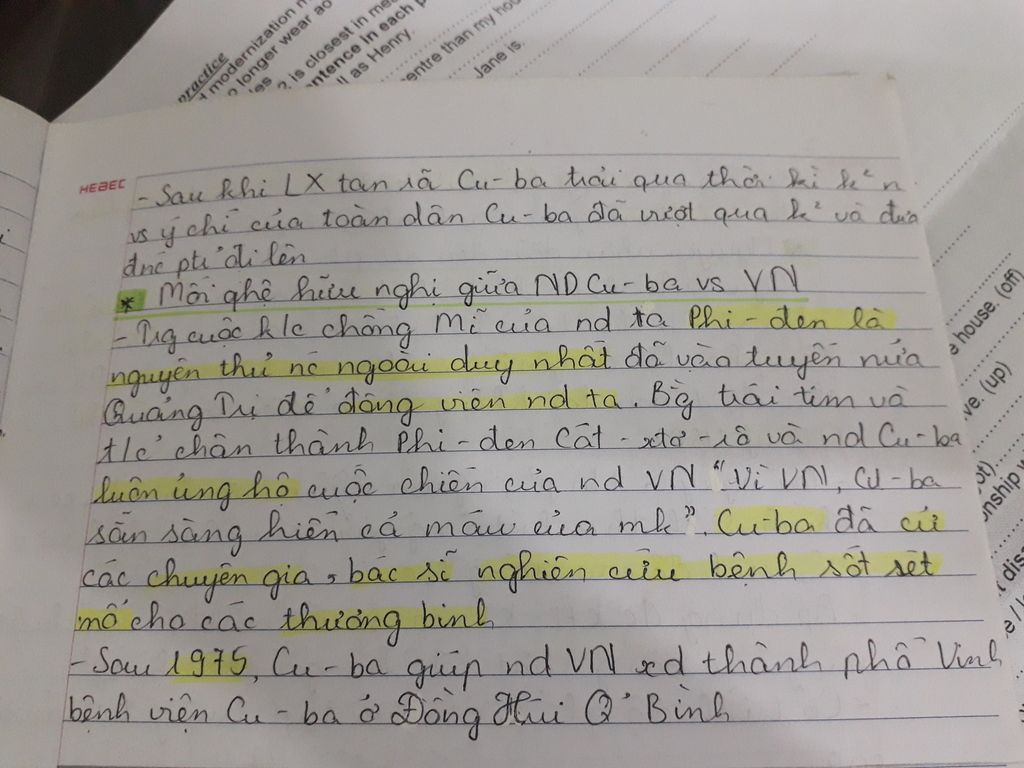 practice
modernization
longer wear
is closest in
entence in each
ll as Henry.
entre than my
Jane is
HEBEC
- Sau khi LX tan rã Cu-ba trải qua thời kì k² n
vs ý chí của toàn dân Cu-ba đã vượt qua k² và đưa
đnc ptr' đi lên
* Mối qhệ hữu nghị giữa ND Cu-ba vs VN
- Trg cuộc k/c chống Mĩ của nd ta Phi-đen là
nguyên thủ nc ngoài duy nhất đã vào tuyến nửa
Quảng Trị để động viên nd ta. Bằg trái tim và
t/c' chân thành Phi-đen Cát-xtơ-rô và nd Cu-ba
luôn ủng hộ cuộc chiến của nd VN "Vì VN, Cu-ba
sẵn sàng hiến cả máu của mk". Cu-ba đã cử
các chuyên gia, bác sĩ nghiên cứu bệnh sốt rét
mổ cho các thương binh
- Sau 1975, Cu-ba giúp nd VN xd thành phố Vinh
bệnh viện Cu-ba ở Đồng Hới Q' Bình
house. (off)
ve. (up)